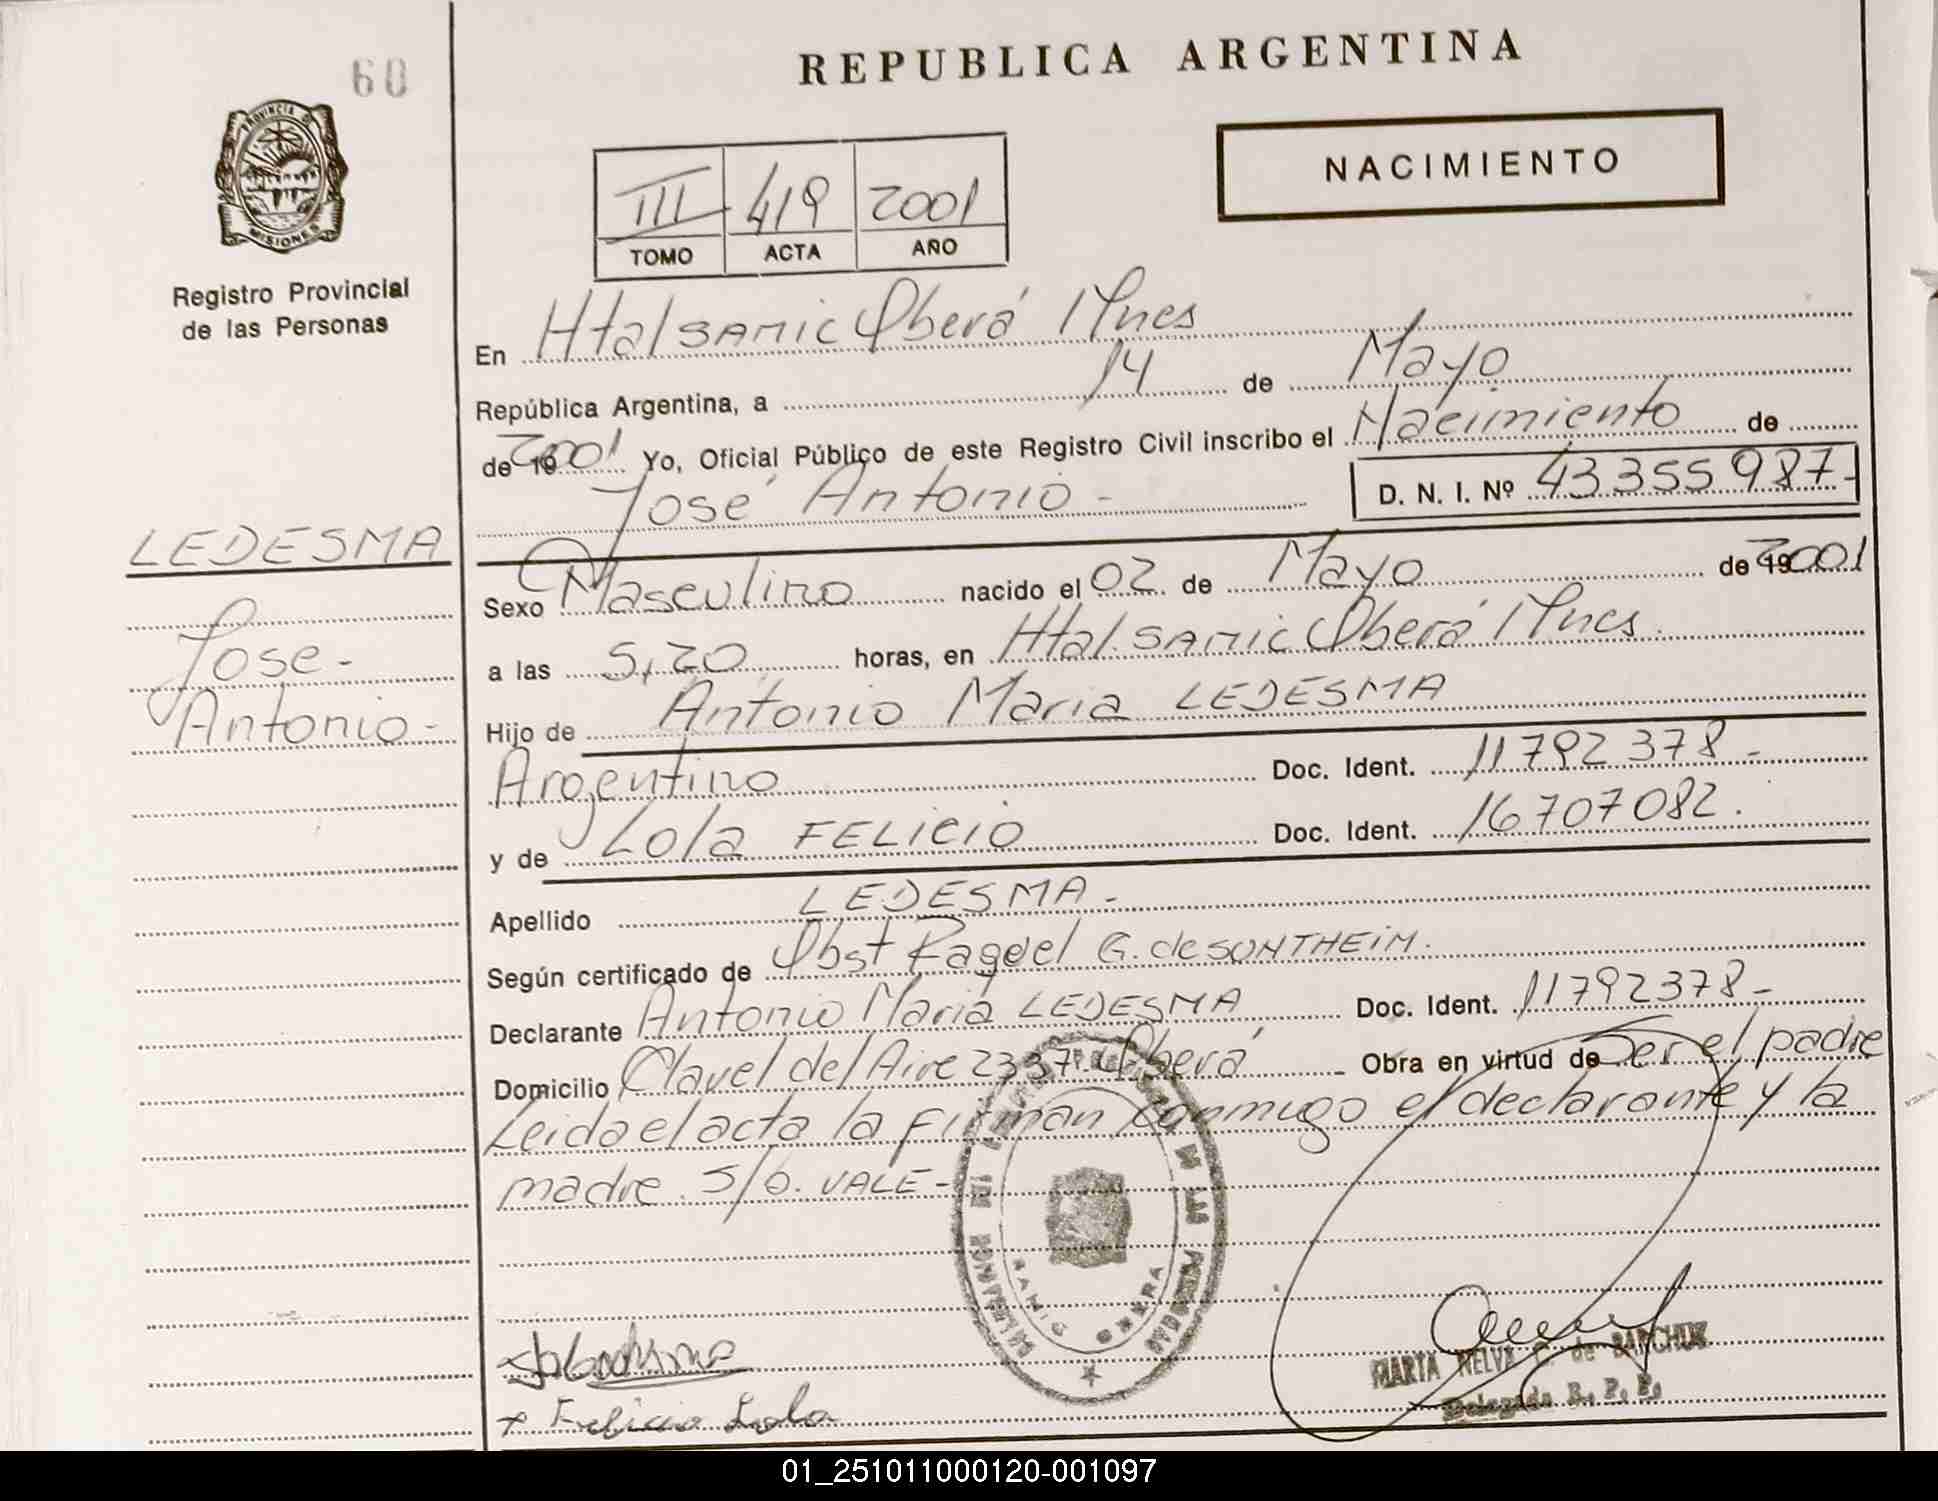 60
REPUBLICA ARGENTINA
NACIMIENTO
III 419 2001
TOMO ACTA AÑO
PROVINCIA DE
MISIONES
Registro Provincial
de las Personas
En Htal SAMIC Oberá Mnes
República Argentina, a 14 de Mayo
de 19 2001 Yo, Oficial Público de este Registro Civil inscribo el Nacimiento de
José Antonio - D. N. I. Nº 43355987-
LEDESMA
Jose-
Antonio-
Sexo Masculino nacido el 02 de Mayo de 19 2001
a las 5,20 horas, en Htal. SAMIC Oberá Mnes.
Hijo de Antonio Maria LEDESMA
Argentino Doc. Ident. 11792378-
y de Lola FELICIO Doc. Ident. 16707082.
Apellido LEDESMA-
Según certificado de Obst Raquel G. de SONTHEIM.
Declarante Antonio Maria LEDESMA Doc. Ident. 11792378-
Domicilio Clavel del Aire 2337. Oberá Obra en virtud de Ser el padre
Leida el acta la firman conmigo el declarante y la
madre. S/b. VALE-
SAMIC OBERA
+ Felicio Lola
MARTA NELVA de BARCHUK
Delegada R. P. P.
01_251011000120-001097